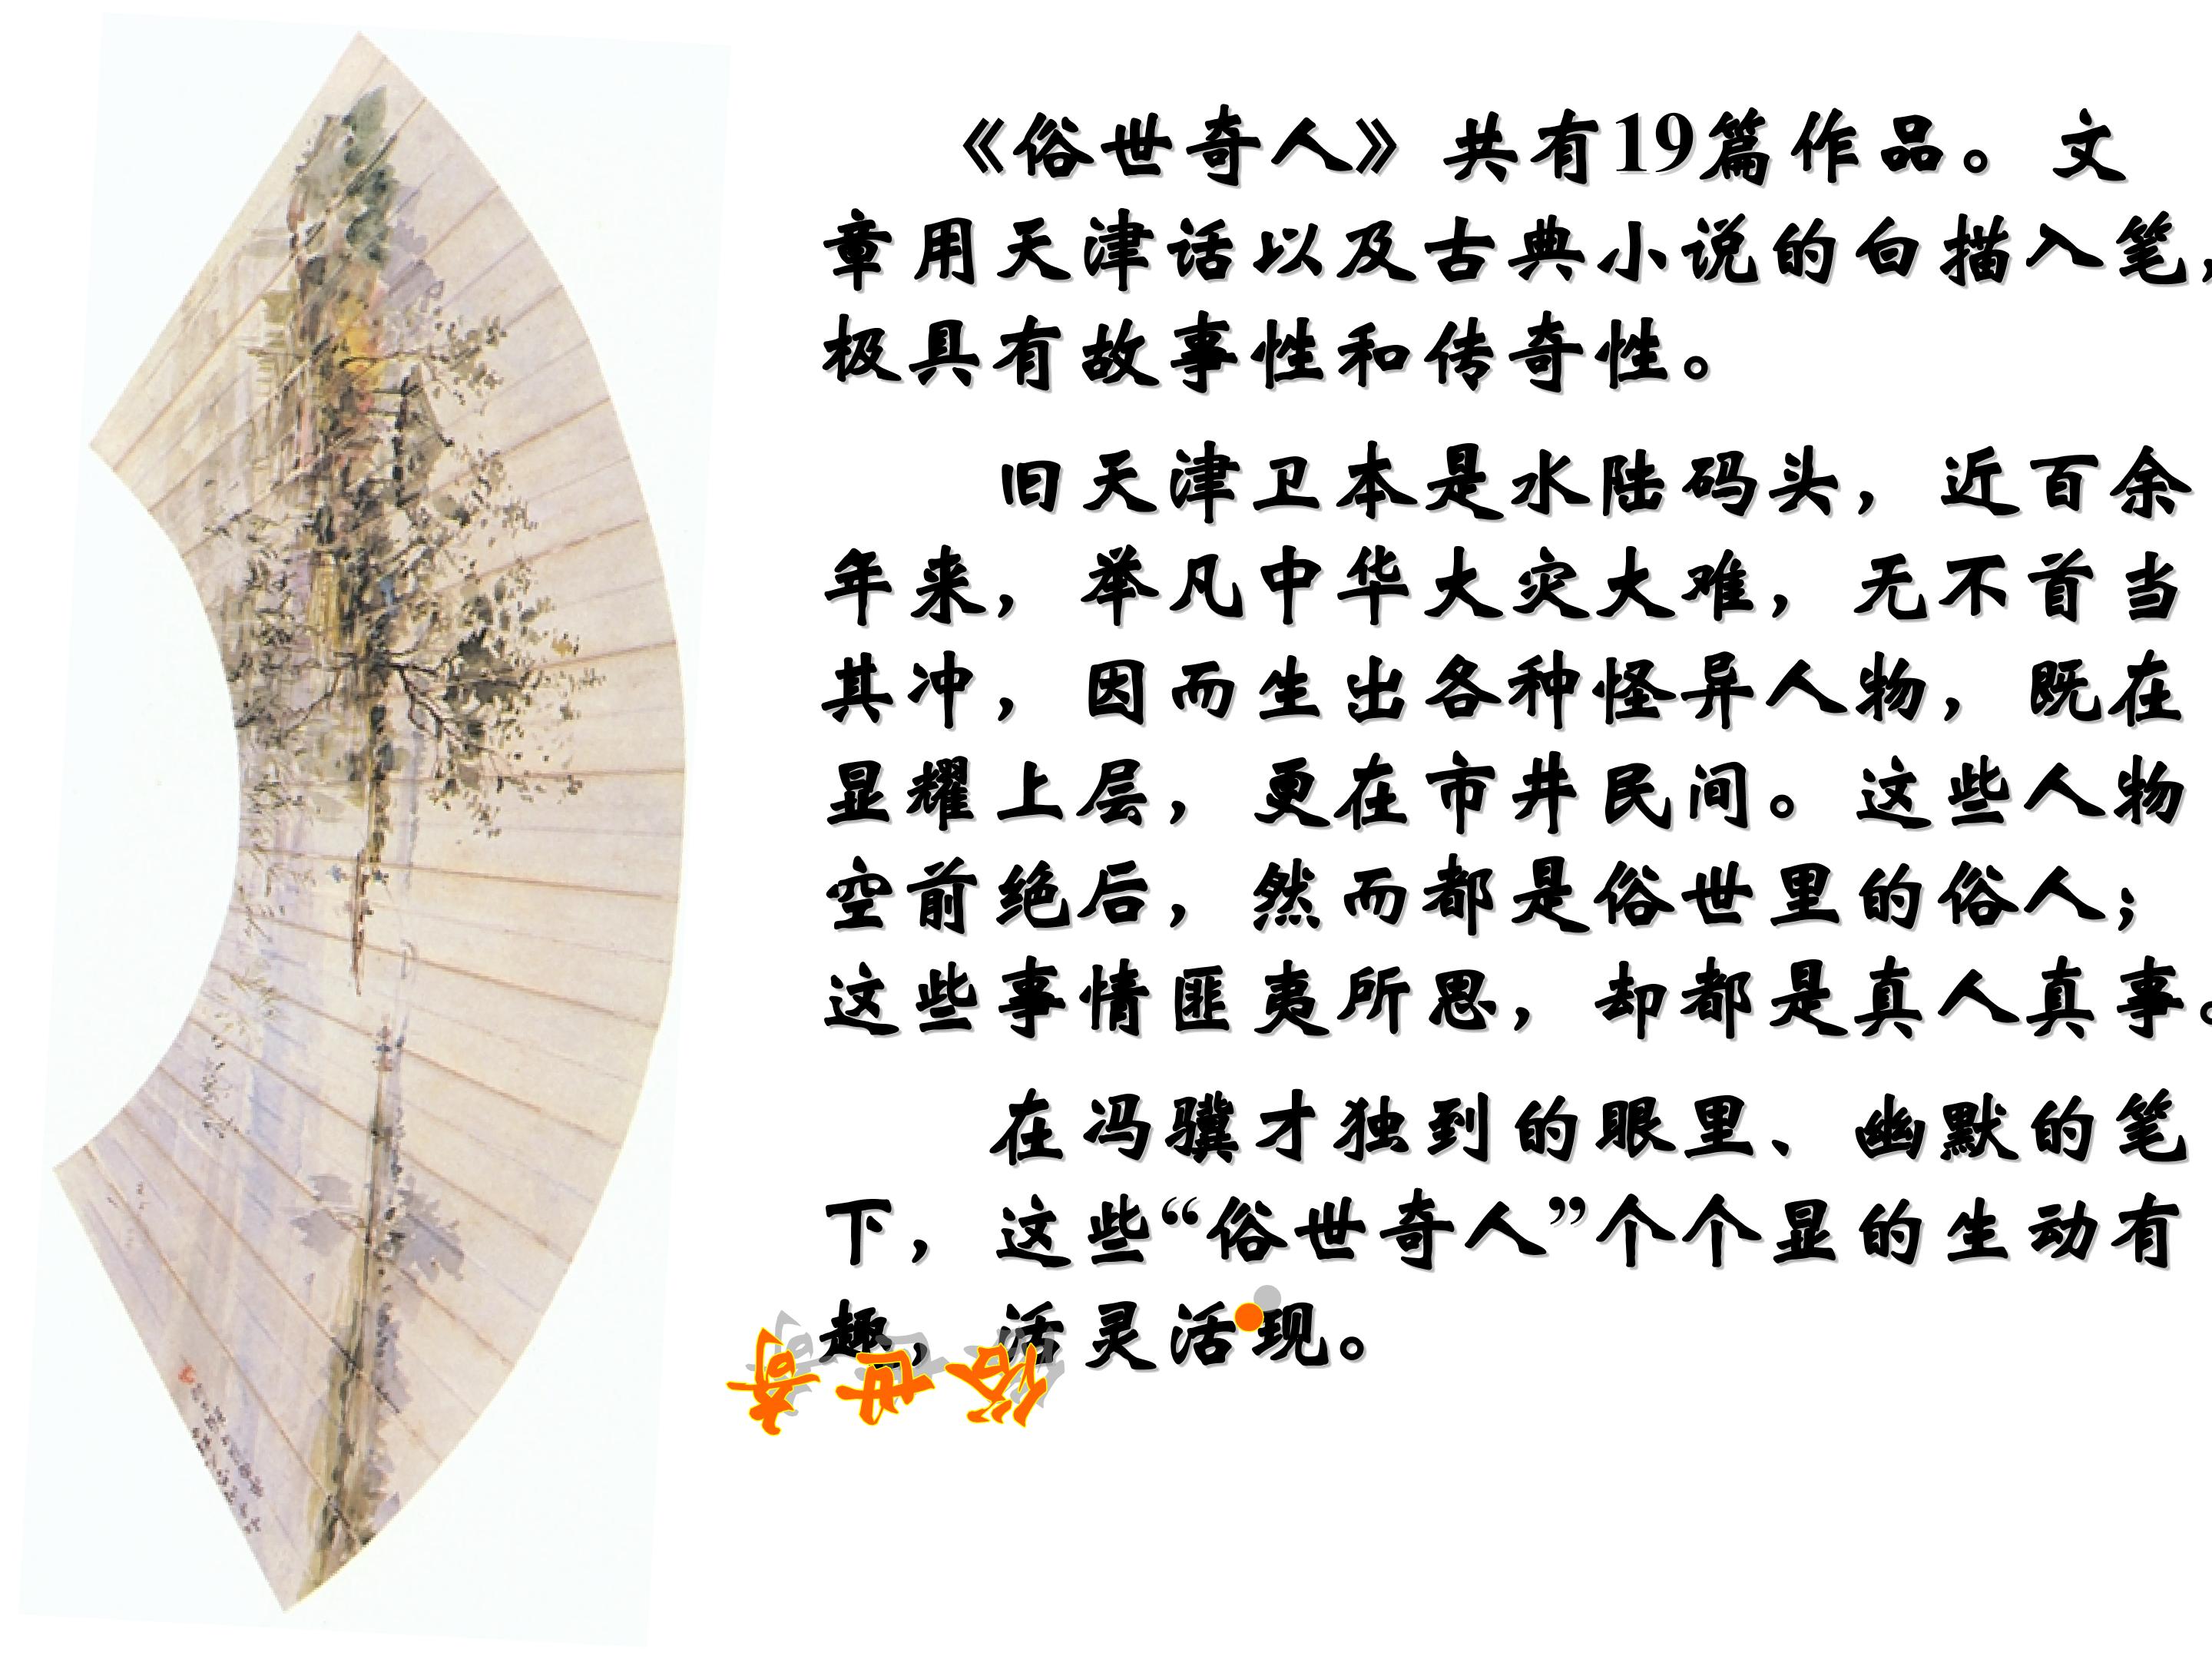 《俗世奇人》共有19篇作品。文
章用天津话以及古典小说的白描入笔，
极具有故事性和传奇性。
旧天津卫本是水陆码头，近百余
年来，举凡中华大灾大难，无不首当
其冲，因而生出各种怪异人物，既在
显耀上层，更在市井民间。这些人物
空前绝后，然而都是俗世里的俗人；
这些事情匪夷所思，却都是真人真事。
在冯骥才独到的眼里、幽默的笔
下，这些“俗世奇人”个个显的生动有
趣，活灵活现。
俗世奇